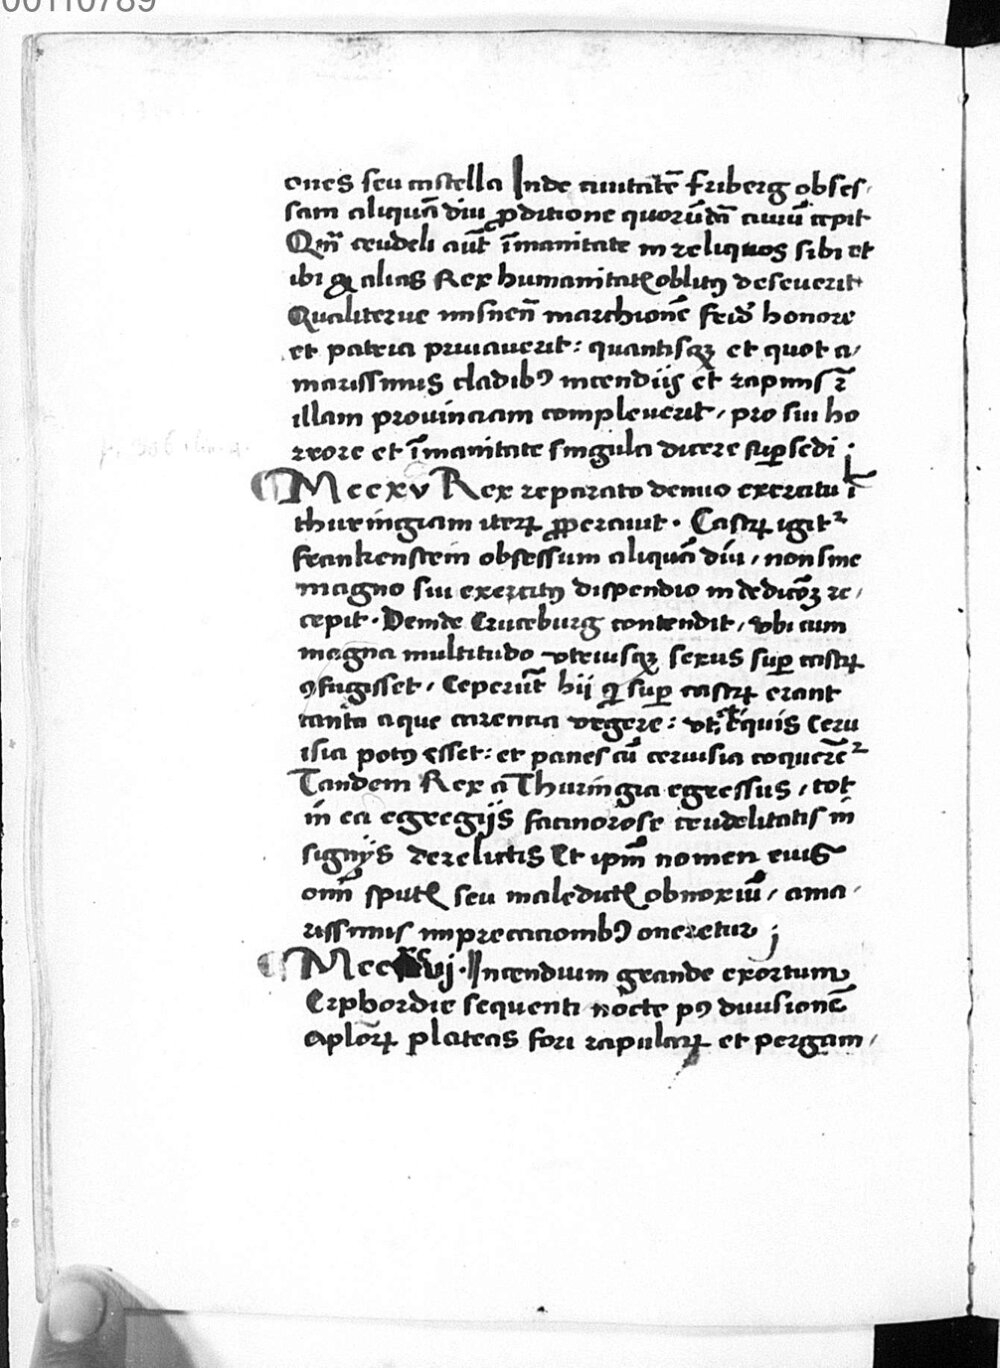 00110789
ones seu castella Inde ciuitatē Friberg obses,
sam aliquā diu ꝓditione quorūdā ciuiū cepit
Qm̄ crudeli aūt īmanitate in reliquos sibi et
ibi ꝙ alias Rex humanitatꝭ oblitꝯ deseuerit
Qualiterue misnen̄ marchionē feid᷒ honore
et patria priuauerit: quantisqꝫ et quot a,
marissimis cladibꝯ incendijs et rapinis r̄
illam prouinciam compleuerit, pro sui ho
rrore et īmanitate singula dicere suꝑsedi
Mccxv Rex reparato denuo exercitu ī
thuringiam iterꝝ ꝓꝑerauit. Castrꝝ igitr
Frankenstein obsessum aliquā diu, non sine
magno sui exercitꝯ dispendio in dedicōꝫ re,
cepit. Deinde Cruceburg contendit, vbi cum
magna multitudo vtriusqꝫ sexus suꝑ castrꝝ
ꝯfugisset, Ceperūt hij q̄ suꝑ castrꝝ erant
tanta aque carencia vrgere: vt, equis ceru
isia potꝯ esset: et panes cū ceruisia coquerēr
Tandem Rex a Thuringia egressus, tot
in ea egregijs facinorose crudelitatis in
signijs derelictis Et ipm̄ nomen eius
omī sputꝭ seu maledictꝭ obnoxiū, ama,
rissimis imprecacionibꝯ oneretur
Incendium grande exortum
Erphordie sequenti nocte pꝯ diuisionē
aplōrꝝ plateas fori rapularꝝ et pergam,